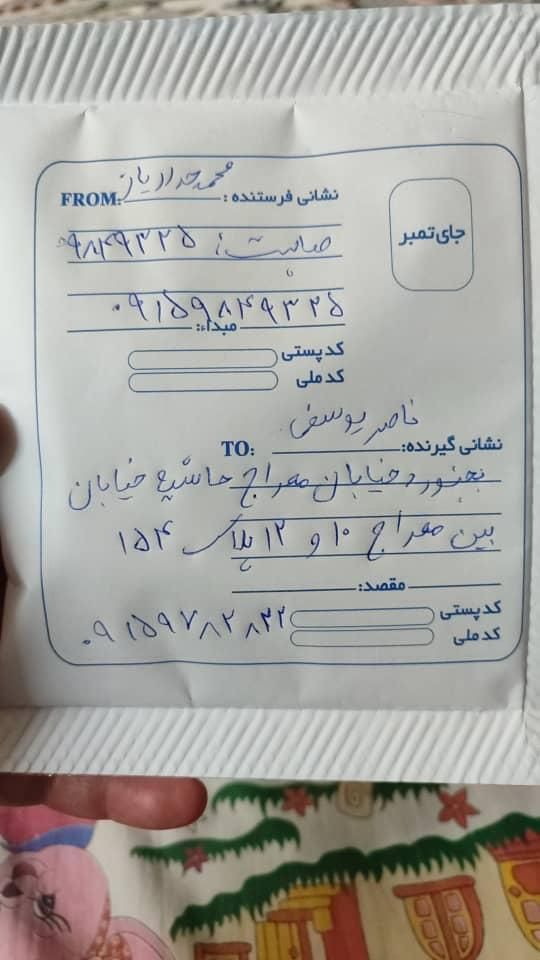 جای تمبر
نشانی فرستنده: محمد خدادیار FROM:
صاحبت: ۹۸۴۹۳۲۵
۰۹۱۵۹۸۴۹۳۲۵
مبداء:
کد پستی
کد ملی
ناصر یوسفی
نشانی گیرنده: TO:
بجنورد خیابان معراج حاشیه خیابان
بین معراج ۱۰ و ۱۲ پلاک ۱۵۴
مقصد:
کد پستی
کد ملی
۰۹۱۵۹۷۸۲۸۳۲